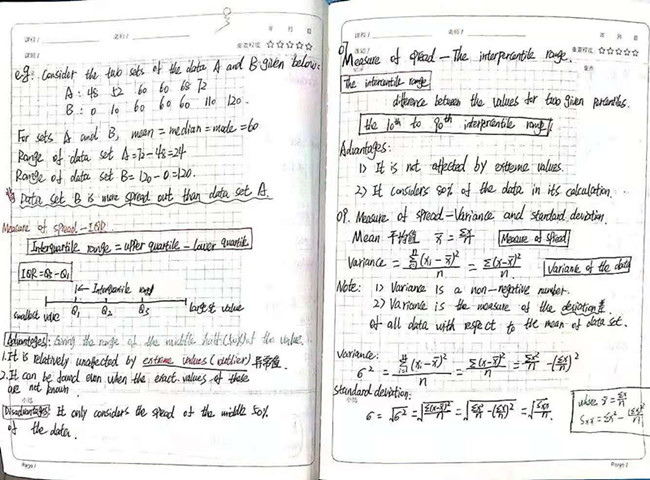 e.g. Consider the two sets of the data A and B given below:
A: 48 52 60 60 68 72
B: 0 10 60 60 60 110 120.
For sets A and B, mean = median = mode = 60
Range of data set A = 72 - 48 = 24
Range of data set B = 120 - 0 = 120.
Data set B is more spread out than data set A.
Measure of spread - IQR
Interquartile range = upper quartile - lower quartile
IQR = Q3 - Q1
Interquartile range
smallest value Q1 Q2 Q3 largest value
Advantages: Giving the range of the middle half (50%) of the values.
1. It is relatively unaffected by extreme values (outlier) 异常值
2. It can be found even when the exact values of these
are not known.
Disadvantages: It only considers the spread of the middle 50%
of the data.
Page /
07 Measure of spread - The interpercentile range.
The interpercentile range
difference between the values for two given percentiles.
the 10th to 90th interpercentile range
Advantages:
1) It is not affected by extreme values.
2) It considers 80% of the data in its calculation.
09. Measure of spread - Variance and standard deviation.
Mean 平均值 x̄ = Σx/n Measure of Spread
Variance = Σ(xi - x̄)²/n = Σ(x - x̄)²/n Variance of the data
Note: 1) Variance is a non-negative number.
2) Variance is the measure of the deviation差
of all data with respect to the mean of data set.
Variance:
σ² = Σ(xi - x̄)²/n = Σ(x - x̄)²/n = Σx²/n - (Σx/n)²
Standard deviation:
σ = √σ² = √(Σ(x - x̄)²/n) = √(Σx²/n - (Σx/n)²) = √(Sxx/n)
where x̄ = Σx/n
Sxx = Σx² - (Σx)²/n
Page /